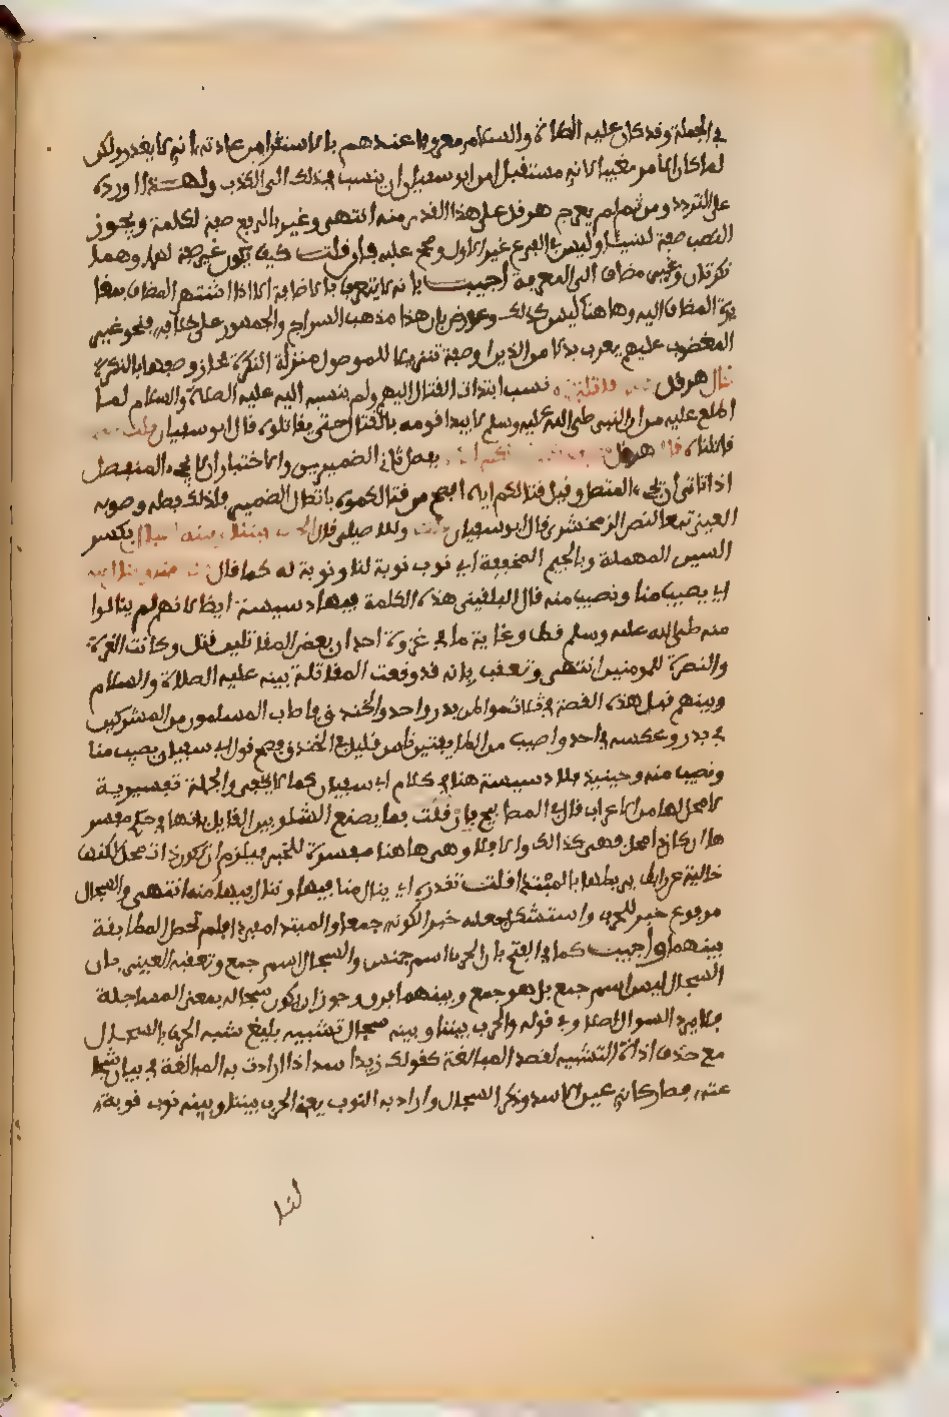 في الجملة وقد كان عليه الصلاة والسلام معروفا عندهم بالاستقراء من عادته انه لا يغدر ولكن
لما كان الامر مغيبا لانه مستقبل امن ابو سفيان ان ينسب في ذلك الى الكذب ولهذا اورده
على التردد ومن ثم لم يعرج هرقل على هذا القدر منه انتهى وغير بالرفع صفة لكلمة ويجوز
النصب صفة لشيئا وليس في الفرع غير الاول وصح عليه فان قلت كيف يكون غير صفة لهما وهما
نكرتان وغير مضاف الى المعرفة اجيب بانه لا يتعرف بالاضافة الا اذا اشتهر المضاف بمغا
يرة المضاف اليه وهاهنا ليس كذلك وعورض بان هذا مذهب السراج والجمهور على خلافه فنحو غير
المغضوب عليهم يعرب بدلا من الذين او صفة تنزيلا للموصول منزلة النكرة فجاز وصفها بالنكرة
قال هرقل قاتلتموه نسب ابتداء القتال اليهم ولم ينسبه اليه عليه الصلاة والسلام لما
اطلع عليه من ان النبي صلى الله عليه وسلم لا يبدا قومه بالقتال حتى يقاتلوه قال ابو سفيان قلت
قاتلناه قال هرقل بفصل ثاني الضميرين والاختيار ان لا يجيء المنفصل
اذا تاتى ان يجيء المتصل وقيل قتالكم اياه افصح من قتالكموه باتصال الضمير فلذلك فصله وصوبه
العيني تبعا لنص الزمخشري قال ابو سفيان قلت وللاصيلي قال الحرب بيننا وبينه سجال بكسر
السين المهملة وبالجيم المخففة اي نوب نوبة لنا ونوبة له كما قال
اي يصيب منا ونصيب منه قال البلقيني هذه الكلمة فيها دسيسة ايضا لانهم لم ينالوا
منه صلى الله عليه وسلم قط وغاية ما في غزوة احد ان بعض المقاتلين قتل وكانت العزة
والنصرة للمومنين انتهى وتعقب بانه قد وقعت المقاتلة بينه عليه الصلاة والسلام
وبينهم قبل هذه القصة في ثلاثة مواطن بدر واحد والخندق فاصاب المسلمون من المشركين
في بدر وعكسه في احد واصيب من الطايفتين ناس قليل في الخندق فصح قول ابي سفيان يصيب منا
ونصيب منه وحينيذ فلا دسيسة هنا في كلام ابي سفيان كما لا يخفى والجملة تفسيرية
لا محل لها من الاعراب قال في المصابيح فان قلت فما يصنع الشلوبين القايل بانها في حكم مفسر
ها ان كان ذا محل فهي كذلك والا فلا وهي هاهنا مفسرة للخبر فيلزم ان تكون ذات محل لكنها
خالية من رابط يربطها بالمبتدا قلت تقديره اي ينال منا فيها وننال فيها منه انتهى والسجال
مرفوع خبر للحرب واستشكل جعله خبرا لكونه جمعا والمبتدا مفردا فلم تحصل المطابقة
بينهما واجيب كما في الفتح بان الحرب اسم جنس والسجال اسم جمع وتعقبه العيني بان
السجال ليس اسم جمع بل هو جمع وبينهما فرق وجوز ان يكون سجال بمعنى المساجلة
فلا يرد السوال اصلا وفي قوله والحرب بيننا وبينه سجال تشبيه بليغ شبه الحرب بالسجال
مع حذف اداة التشبيه لقصد المبالغة كقولك زيد اسد اذا اردت به المبالغة في بيان شجا
عته فصار كانه عين الاسد وذكر السجال واراد به النوب يعني الحرب بيننا وبينه نوب نوبة
لنا